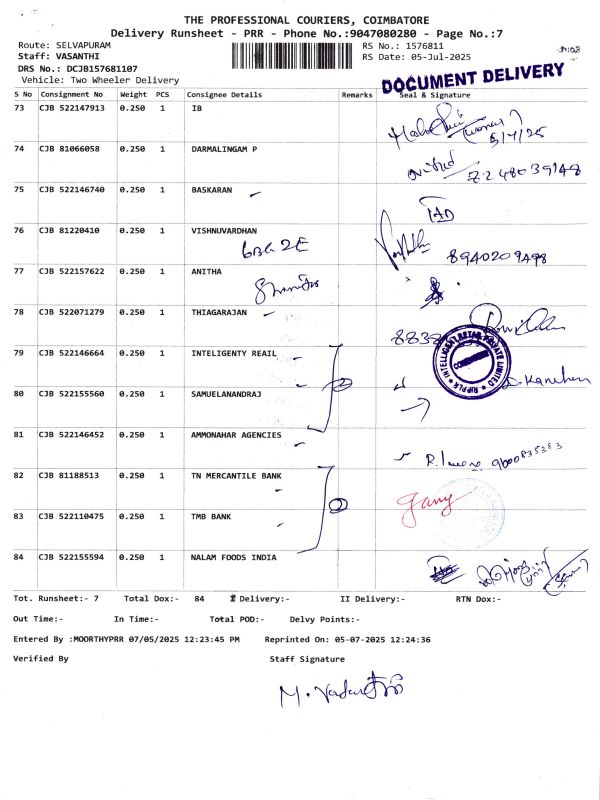 THE PROFESSIONAL COURIERS, COIMBATORE
Delivery Runsheet - PRR - Phone No.:9047080280 - Page No.:7
Route: SELVAPURAM RS No.: 1576811
Staff: VASANTHI RS Date: 05-Jul-2025
DRS No.: DCJB157681107
Vehicle: Two Wheeler Delivery
DOCUMENT DELIVERY
S No Consignment No Weight PCS Consignee Details Remarks Seal & Signature
73 CJB 522147913 0.250 1 IB
5/7/25
74 CJB 81066058 0.250 1 DARMALINGAM P
75 CJB 522146740 0.250 1 BASKARAN
76 CJB 81220410 0.250 1 VISHNUVARDHAN
8940209498
77 CJB 522157622 0.250 1 ANITHA
78 CJB 522071279 0.250 1 THIAGARAJAN
79 CJB 522146664 0.250 1 INTELIGENTY REAIL
INTELLIGENT RETAIL PRIVATE LIMITED
RIPPLR
80 CJB 522155560 0.250 1 SAMUELANANDRAJ
81 CJB 522146452 0.250 1 AMMONAHAR AGENCIES
9600835383
82 CJB 81188513 0.250 1 TN MERCANTILE BANK
83 CJB 522110475 0.250 1 TMB BANK
84 CJB 522155594 0.250 1 NALAM FOODS INDIA
Tot. Runsheet:- 7 Total Dox:- 84 I Delivery:- II Delivery:- RTN Dox:-
Out Time:- In Time:- Total POD:- Delvy Points:-
Entered By :MOORTHYPRR 07/05/2025 12:23:45 PM Reprinted On: 05-07-2025 12:24:36
Verified By Staff Signature